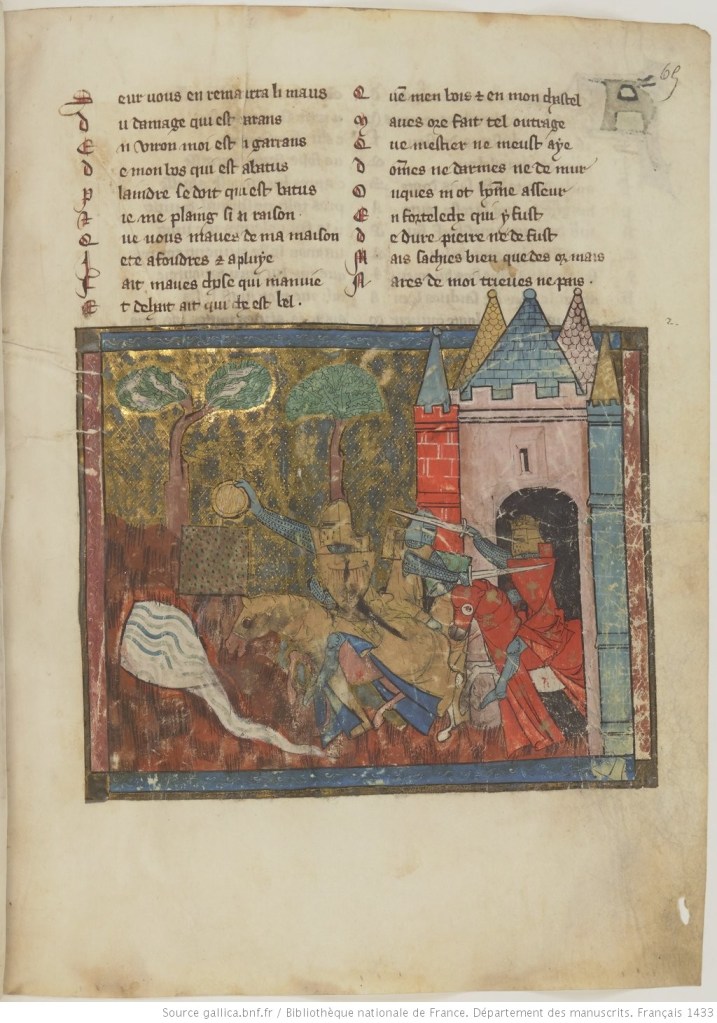 65
S eur vous en remaitra li maus
D u damage qui est parans
E n viron moi est li garrans
D e mon bos qui est abatus
P laindre se doit qui est batus
Z ie me plaing si ai raison
Q ue vous maves de ma maison
I ete a foudres & a pluye
F ait maves chose qui manuie
E t dehait ait qui che est bel .
Q uen men bois & en mon chastel
M aves ore fait tel outrage
Q ue mestier ne meust aye
D omes ne darmes ne de mur
O nques ni ot home asseur
E n forteleche qui y fust
D e dure pierre ne de fust
M ais sachies bien que des or mais
N ares de moi trieves ne pais .
2.
Source gallica.bnf.fr / Bibliothèque nationale de France. Département des manuscrits. Français 1433